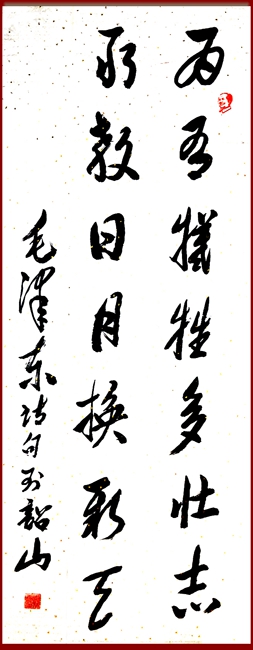 为有犧牲多壮志
敢教日月换新天
毛泽东诗句到韶山